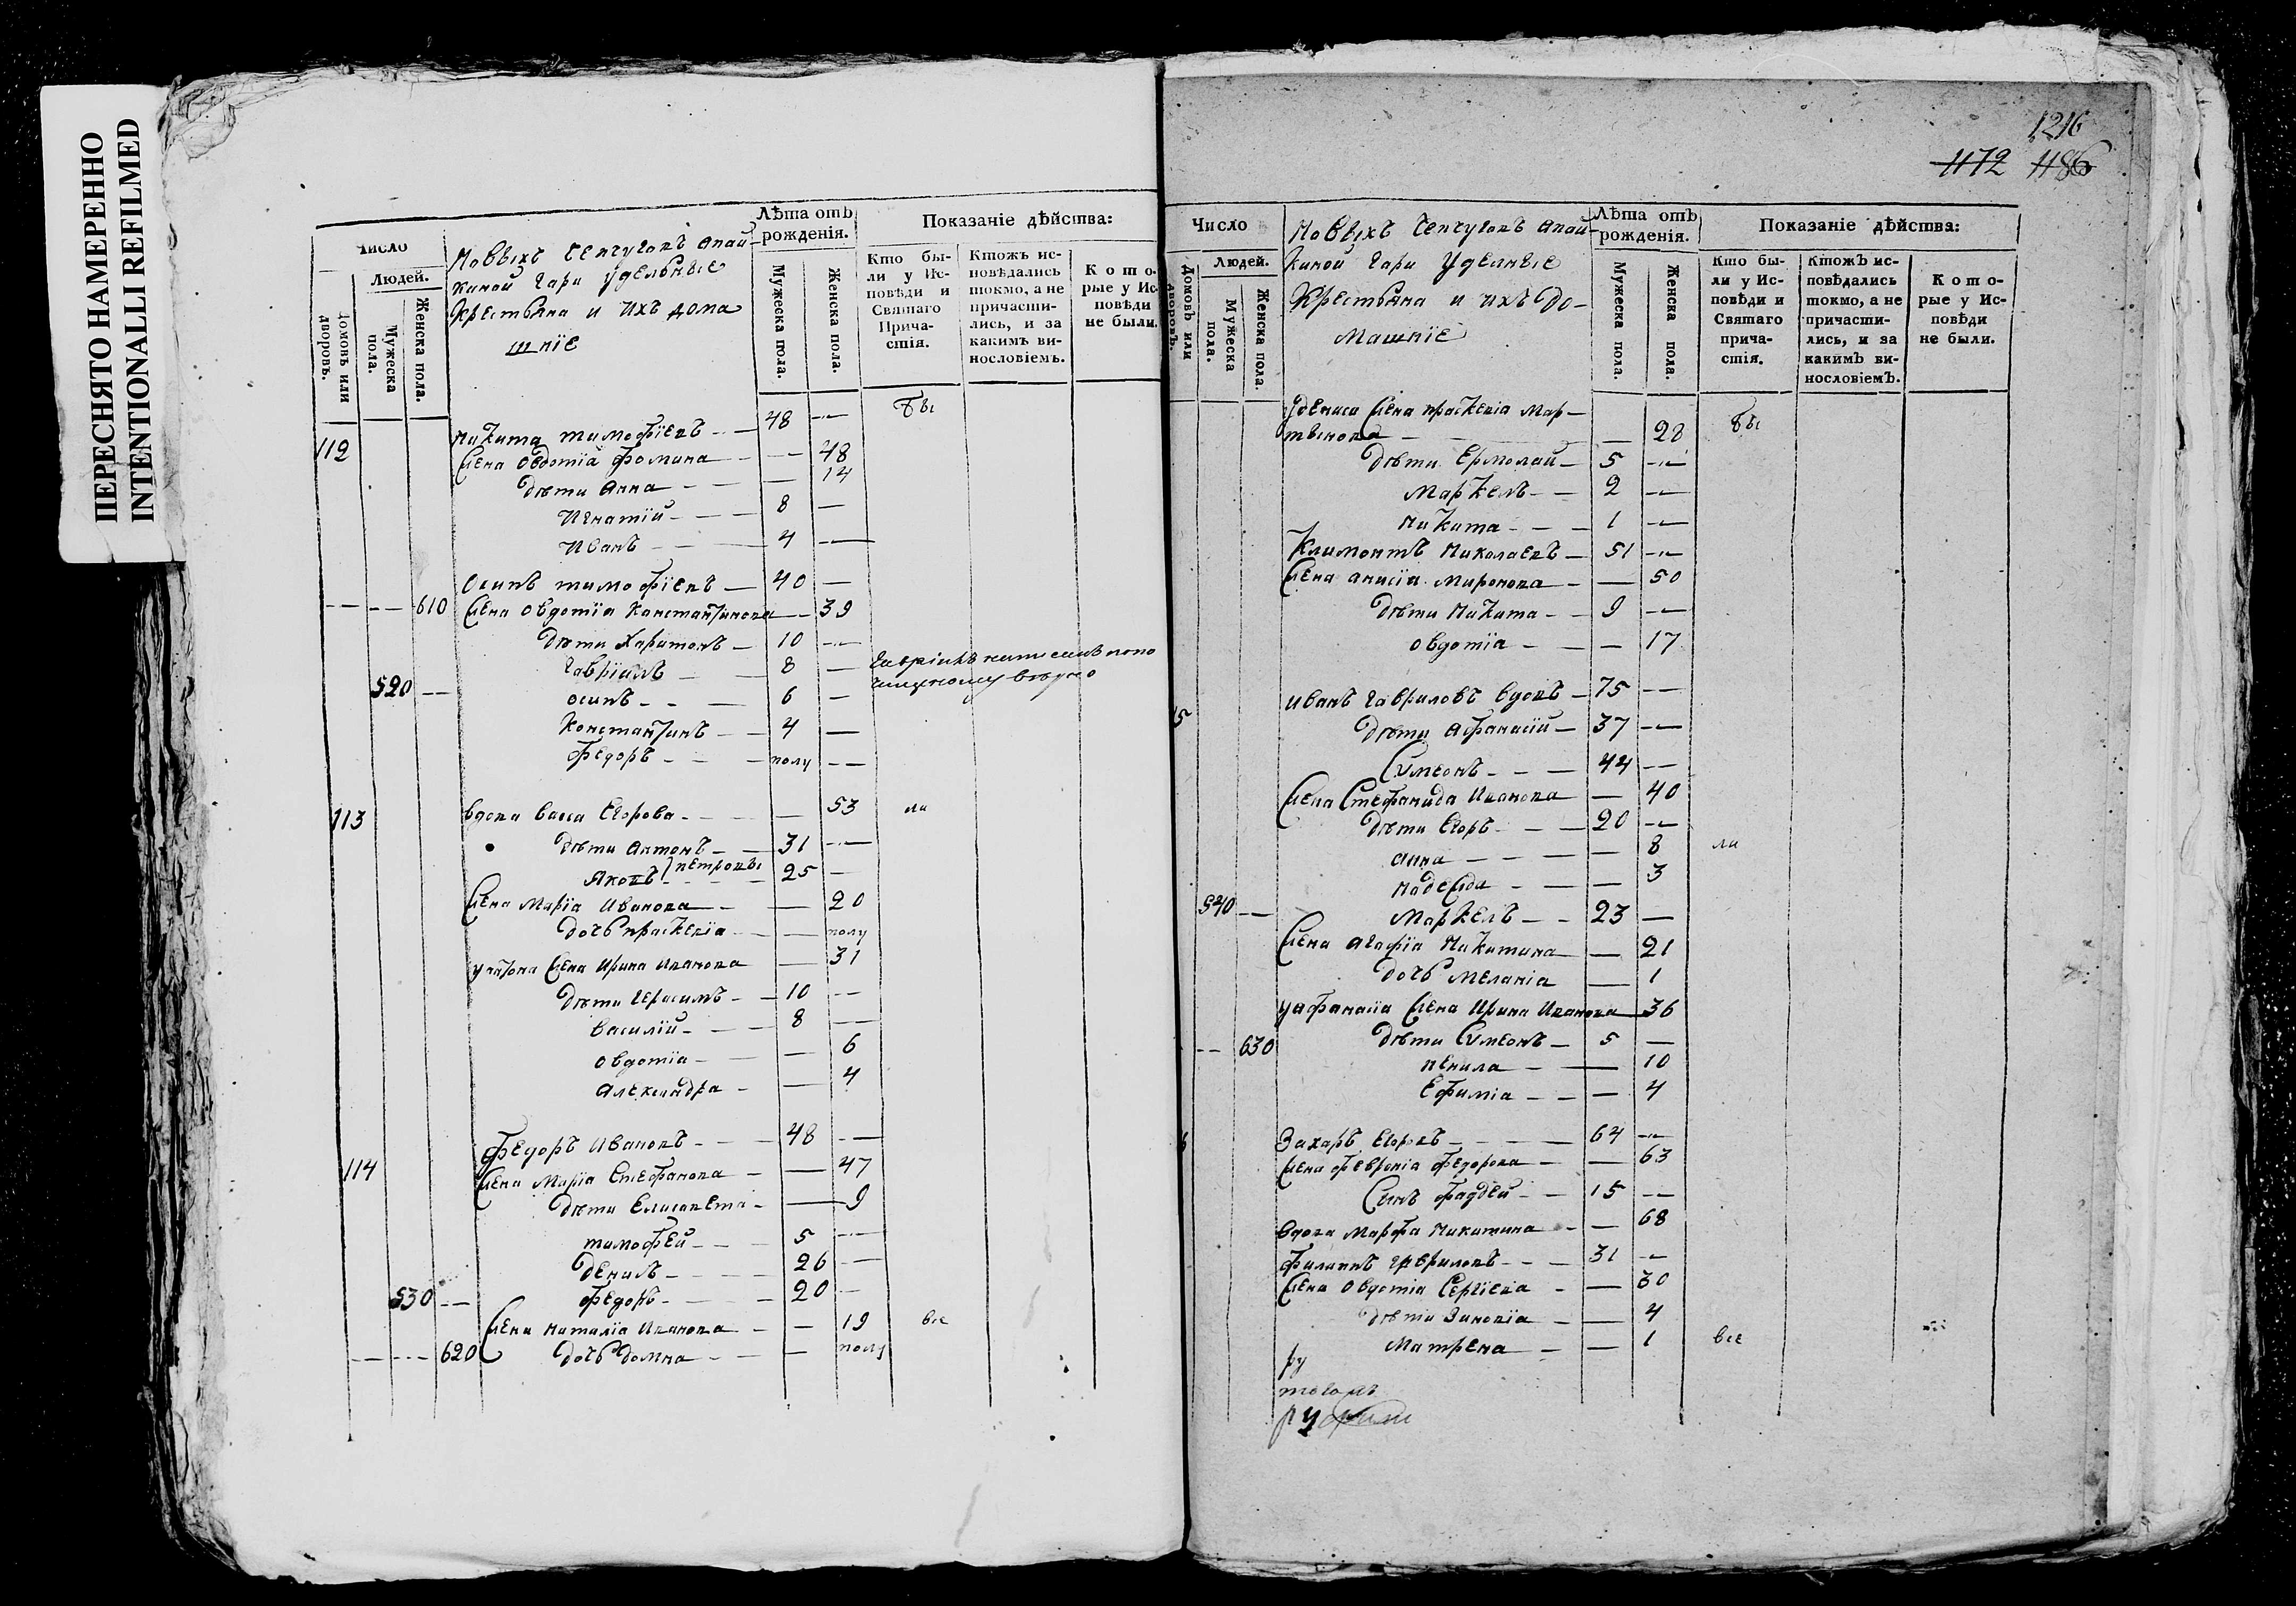 ПЕРЕСНЯТО НАМЕРЕННО
INTENTIONALLI REFILMED
Число
Людей.
Домовъ или дворовъ.
Мужеска пола.
Женска пола.
Новыхъ
киной гари Удельные
Крестьяна и ихъ дома
шніе
Лѣта отъ рожденія.
Мужеска пола.
Женска пола.
Показаніе дѣйства:
Кто были у Исповѣди и Святаго Причастія.
Ктожъ исповѣдались токмо, а не причастились, и за какимъ винословіемъ.
Которые у Исповѣди не были.
112 Никита тимофіевъ 48 — бы
жена овдотіа фомина — 48
дѣти Анна — 14
Игнатій 8 —
Иванъ 4 —
Осипъ тимофіевъ 40 —
— — 610 жена овдотіа Константинова — 39
дѣти Харитонъ 10 —
Гавріилъ 8 —
520 — осипъ 6 —
Константинъ 4 —
федоръ полу —
113 вдова васса Егорова — 53 ли
дѣти антонъ 31 —
Яковъ } петровы 25 —
жена Маріа Иванова — 20
дочь праскевіа — полу
у антона жена Ирина Иванова — 31
дѣти Герасимъ 10 —
василій 8 —
овдотіа — 6
александра — 4
114 федоръ Ивановъ 48 —
жена Маріа Стефанова — 47
дѣти Елисавета — 9
тимофей 5 —
денисъ 26 —
530 — федоръ 20 —
жена наталіа Иванова — 19 все
— — 620 дочь домна — полу
1216
1172 1186
Число
Людей.
Домовъ или дворовъ.
Мужеска пола.
Женска пола.
Новыхъ
киной гари Уделные
Крестьяна и ихъ до-
машніе
Лѣта отъ рожденія.
Мужеска пола.
Женска пола.
Показаніе дѣйства:
Кто были у Исповѣди и Святаго причастія.
Ктожъ исповѣдались токмо, а не причастились, и за какимъ винословіемъ.
Которые у Исповѣди не были.
У дениса жена праскевіа Мар-
тынова — 28 бы
дѣти Ермолай 5 —
Маркелъ 2 —
Никита 1 —
Климонтъ Николаевъ 51 —
жена анисіа Миронова — 50
дѣти Никита 9 —
овдотіа — 17
5 иванъ гавриловъ вдовъ 75 —
дѣти Афанасій 37 —
Симеонъ 44 —
жена Стефанида Иванова — 40
дѣти Егоръ 20 —
анна — 8 ли
надежда — 3
540 — Маркелъ 23 —
жена агафіа Никитина — 21
дочь Меланіа — 1
у афанасіа жена Ирина Иванова — 36
— 630 дѣти Симеонъ 5 —
ненила — 10
Ефиміа — 4
6 Захаръ Егоровъ 64 —
жена февроніа федорова — 63
Сынъ фаддей 15 —
вдова Марфа Никитина — 68
филиппъ гавриловъ 31 —
жена овдотіа Сергіева — 30
дѣти Зиновіа — 4
Матрена — 1 все
ру